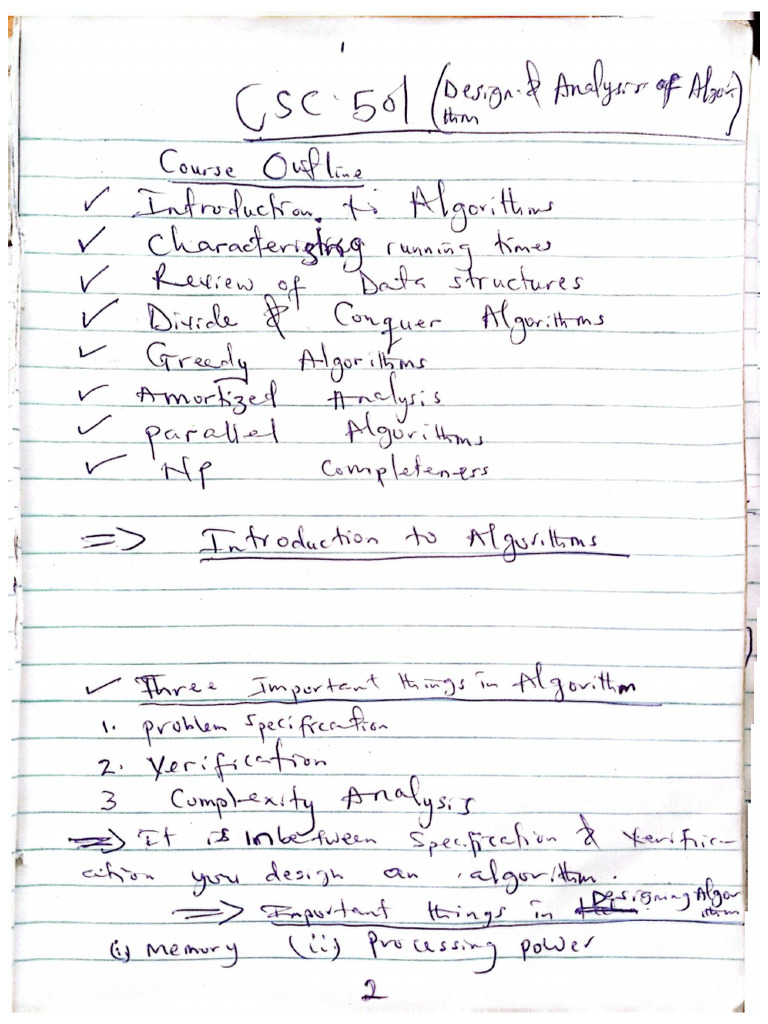 1
CSC 501 (Design & Analysis of Algori
thm)
Course Outline
✓ Introduction to Algorithms
✓ Characterizing running times
✓ Review of Data structures
✓ Divide & Conquer Algorithms
✓ Greedy Algorithms
✓ Amortized Analysis
✓ parallel Algorithms
✓ NP Completeness
=> Introduction to Algorithms
✓ Three Important things in Algorithm
1. problem specification
2. Verification
3 Complexity Analysis
=> It is inbetween Specification & Verific-
ation you design an algorithm.
=> Important things in Designing Algor
ithm
(i) Memory (ii) Processing power
2